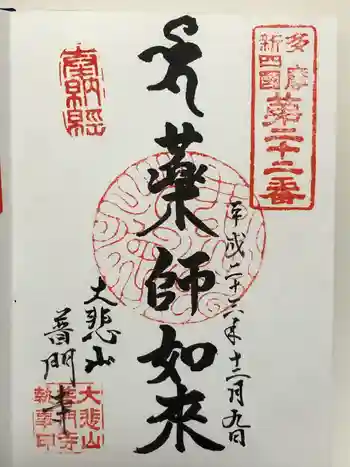 多摩
新四國
第二十二番
奉納経
平成二十六年十二月九日
薬師如来
大悲山
普門寺
大悲山
普門寺
執事印